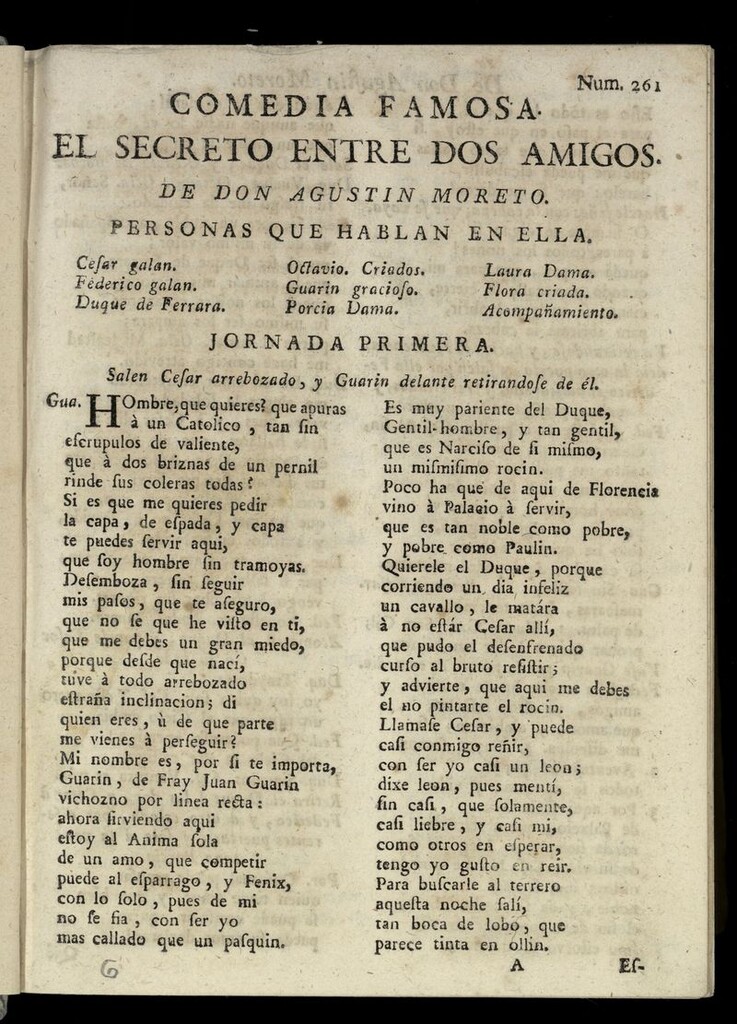 Num. 261
COMEDIA FAMOSA.
EL SECRETO ENTRE DOS AMIGOS.
DE DON AGUSTIN MORETO.
PERSONAS QUE HABLAN EN ELLA.
Ceſar galan.
Federico galan.
Duque de Ferrara.
Octavio. Criados.
Guarin gracioſo.
Porcia Dama.
Laura Dama.
Flora criada.
Acompañamiento.
JORNADA PRIMERA.
Salen Ceſar arrebozado, y Guarin delante retirandoſe de él.
Gua. HOmbre, que quieres? que apuras
à un Catolico, tan ſin
eſcrupulos de valiente,
que à dos briznas de un pernil
rinde ſus coleras todas?
Si es que me quieres pedir
la capa, de eſpada, y capa
te puedes ſervir aqui,
que ſoy hombre ſin tramoyas.
Deſemboza, ſin ſeguir
mis paſos, que te aſeguro,
que no ſe que he viſto en ti,
que me debes un gran miedo,
porque deſde que nací,
tuve à todo arrebozado
eſtraña inclinacion; di
quien eres, ù de que parte
me vienes à perſeguir?
Mi nombre es, por ſi te importa,
Guarin, de Fray Juan Guarin
vichozno por linea recta:
ahora ſirviendo aqui
eſtoy al Anima ſola
de un amo, que competir
puede al eſparrago, y Fenix,
con lo ſolo, pues de mi
no ſe fia, con ſer yo
mas callado que un paſquin.
Es muy pariente del Duque,
Gentil-hombre, y tan gentil,
que es Narciſo de ſi miſmo,
un miſmiſimo rocin.
Poco ha que de aqui de Florencia
vino à Palacio à ſervir,
que es tan noble como pobre,
y pobre como Paulin.
Quierele el Duque, porque
corriendo un dia infeliz
un cavallo, le matára
à no eſtár Ceſar allí,
que pudo el deſenfrenado
curſo al bruto reſiſtir;
y advierte, que aqui me debes
el no pintarte el rocin.
Llamaſe Ceſar, y puede
caſi conmigo reñir,
con ſer yo caſi un leon;
dixe leon, pues mentí,
ſin caſi, que ſolamente,
caſi liebre, y caſi mi,
como otros en eſperar,
tengo yo guſto en reir.
Para buſcarle al terrero
aqueſta noche ſalí,
tan boca de lobo, que
parece tinta en ollin.
A
Eſ-
6